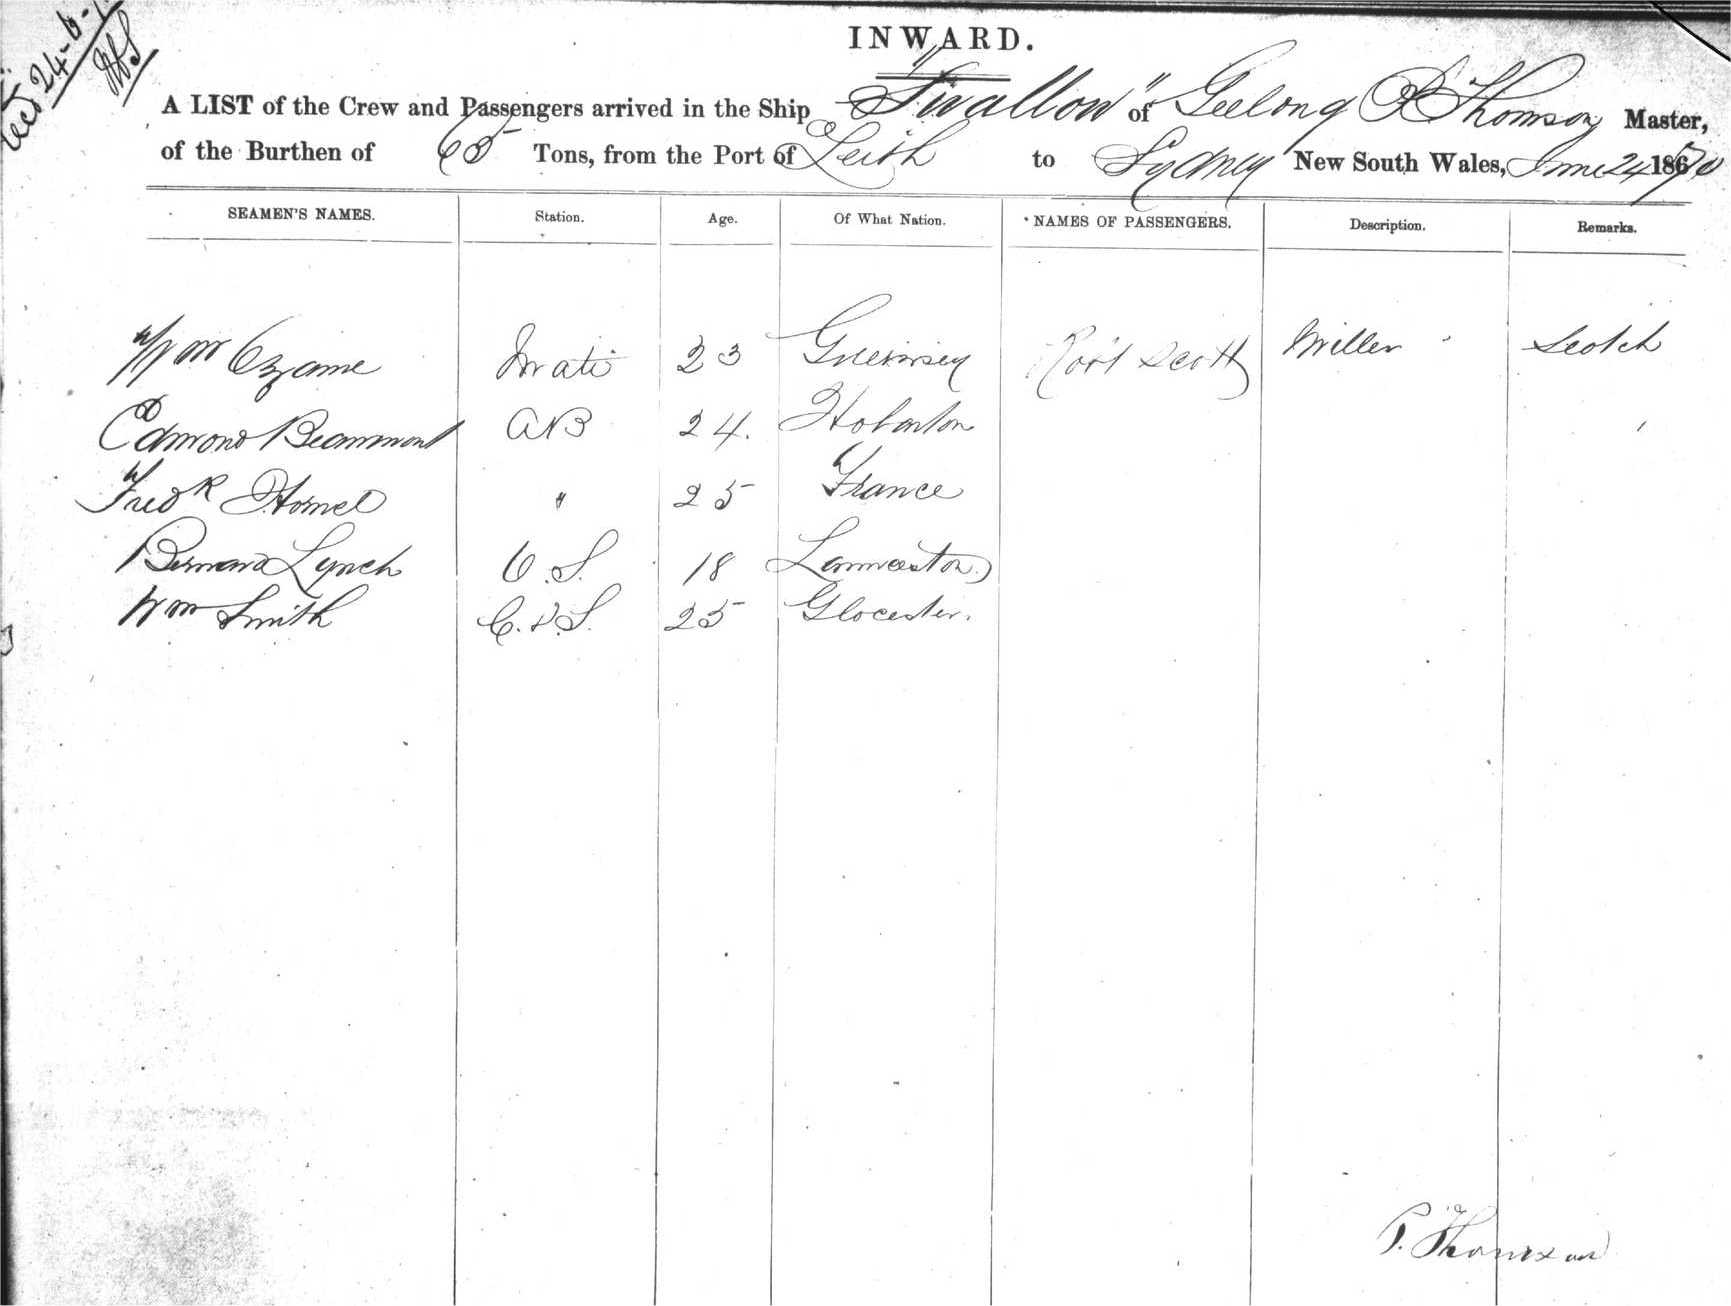 24-6-
INWARD.
A LIST of the Crew and Passengers arrived in the Ship "Swallow" of Geelong P Thomson Master,
of the Burthen of 65 Tons, from the Port of Leith to Sydney New South Wales, June 24 1870
SEAMEN'S NAMES. Station. Age. Of What Nation. NAMES OF PASSENGERS. Description. Remarks.
Wm Ozame Mate 23 Guernsey Robt Scott Miller Scotch
Edmond Beaumont AB 24. Hobarton
Fredk Hamel " 25 France
Bernard Lynch O.S. 18 Launceston
Wm Smith C.&S. 25 Glocester.
P. Thomson